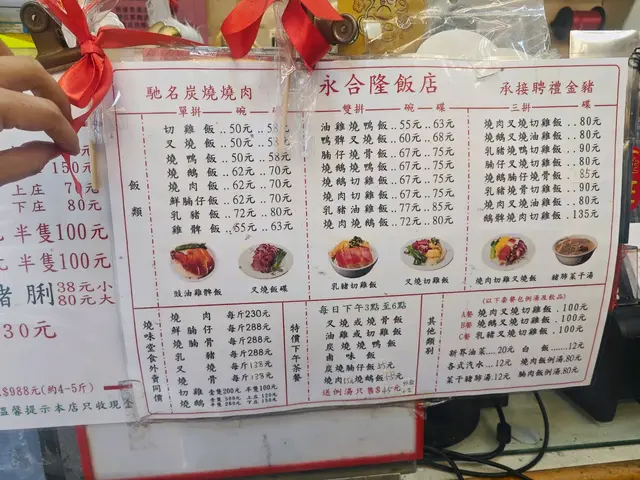 馳名炭燒燒肉
永合隆飯店
承接聘禮金豬
單拼 碗
雙拼 碗 碟
三拼 碟
飯類
切雞飯..50元..58
叉燒飯..50元..58
燒鴨飯..50元..58
燒骨飯..62元..70
燒肉飯..62元..70元
鮮腩仔飯..62元..70元
乳豬飯..72元..80元
雞髀飯..55元..63元
油雞燒鴨飯..55元..63元
鴨髀叉燒飯..60元..68元
腩仔燒骨飯..67元..75元
燒鵝燒鴨飯..67元..75元
燒鵝切雞飯..67元..75元
乳豬油雞飯..77元..85元
燒肉燒鵝飯..72元..80元
燒肉叉燒切雞飯..80元
燒鵝叉燒切雞飯..80元
乳豬燒鴨切雞飯..90元
腩仔叉燒切雞飯..80元
燒鵝腩仔燒骨飯..85元
乳豬燒骨切雞飯..90元
燒肉叉燒油雞飯..80元
鵝髀燒肉切雞飯.135元
豉油雞髀飯
叉燒飯碟
乳豬切雞飯
叉燒切雞飯
燒肉切雞叉燒飯
豬肺菜干湯
燒味堂食外賣同價
燒肉 每斤230元
鮮腩 每斤288元
燒骨 每斤288元
乳豬 每斤288元
叉燒 每斤138元
燒骨 每斤138元
切雞 全隻200元 半隻100元
特價下午茶餐
每日下午3點至6點
叉燒或燒骨飯
油雞或切雞飯
炭燒燒鴨飯
鹵味飯
炭燒腩仔飯
送例湯只售$45元
其他類別
(以下套餐包例湯及飲品)
A餐 燒肉叉燒切雞飯.100元
B餐 燒鵝叉燒切雞飯.100元
C餐 乳豬叉燒切雞飯.100元
新界油菜....20元 白飯........12元
各式汽水....12元 燒肉飯例湯.80元
菜干豬肺湯.12元 腩肉飯例湯.80元
150元
上庄 7元
下庄 80元
半隻100元
半隻100元
豬脷 38元小
80元大
30元
$988元(約4-5斤)
溫馨提示本店只收現金